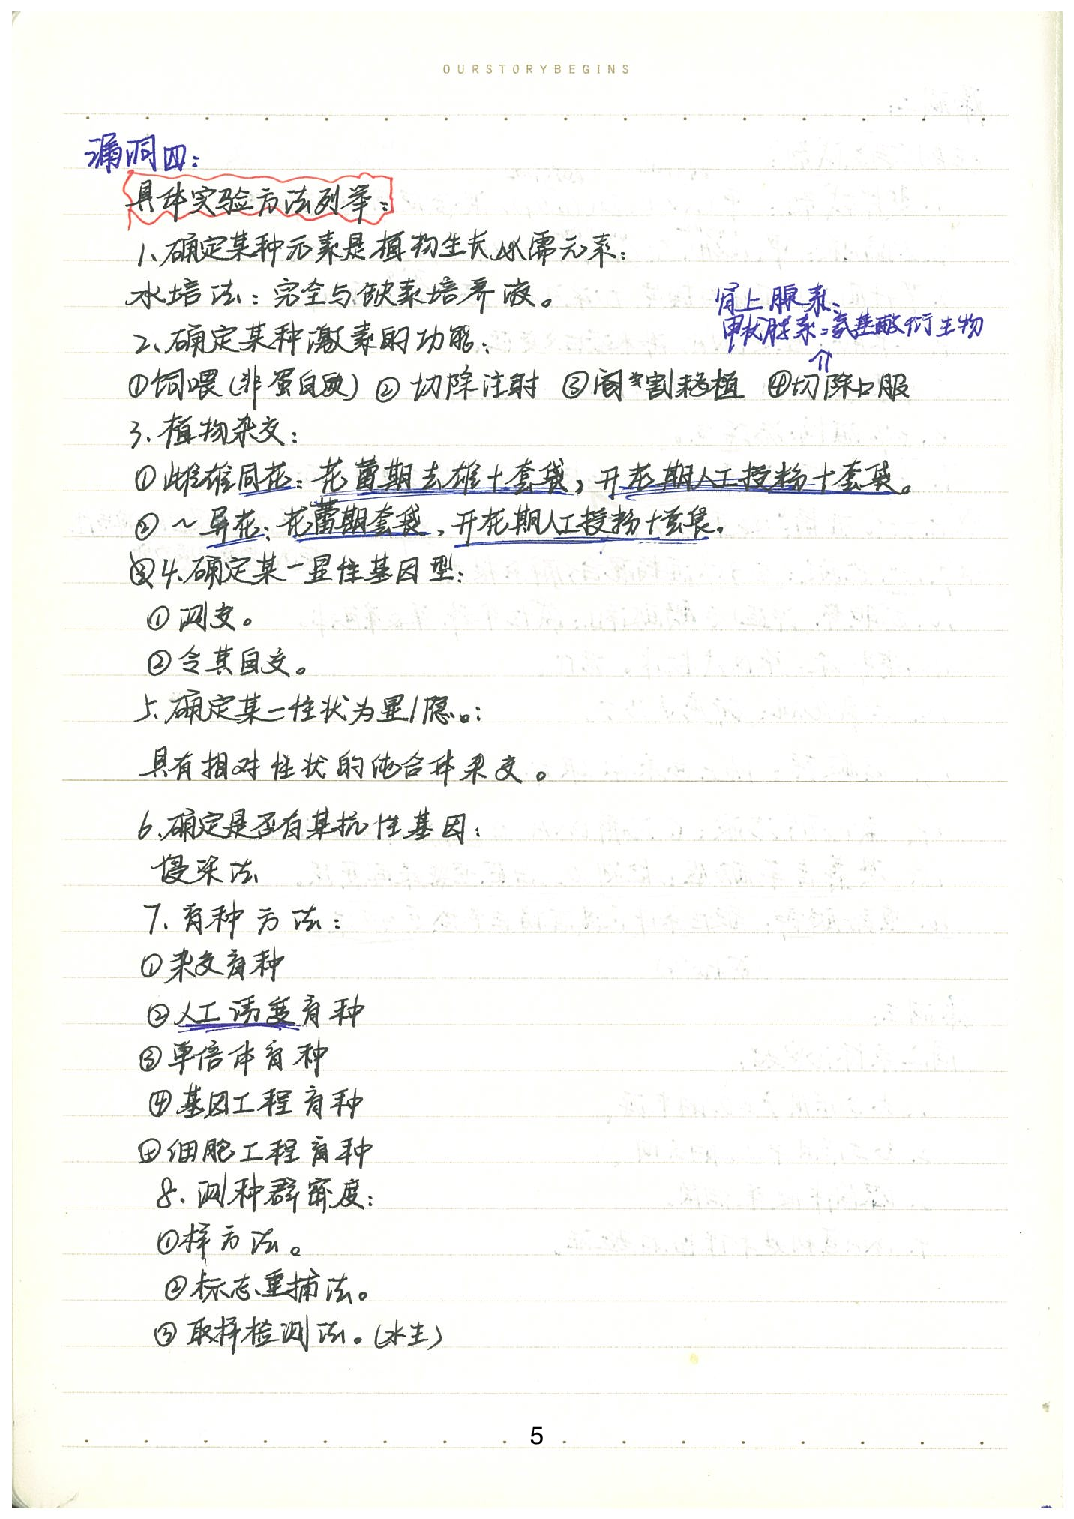 OURSTORYBEGINS
漏洞四:
具体实验方法列举:
1、确定某种元素是植物生长必需元素:
水培法:完全与缺素培养液。
肾上腺素、
甲状腺素:氨基酸衍生物
2、确定某种激素的功能:
①饲喂(非蛋白质) ② 切除注射 ③阉割移植 ④切除口服
3、植物杂交:
①雌雄同花:花蕾期去雄+套袋,开花期人工授粉+套袋。
②~异花:花蕾期套袋,开花期人工授粉+套袋。
4、确定某一显性基因型:
①测交。
②令其自交。
5、确定某一性状为显/隐。:
具有相对性状的纯合种杂交。
6、确定是否有某抗性基因:
侵染法
7、育种方法:
①杂交育种
②人工诱变育种
③单倍体育种
④基因工程育种
⑤细胞工程育种
8、测种群密度:
①样方法。
②标志重捕法。
③取样检测法。(水生)
5